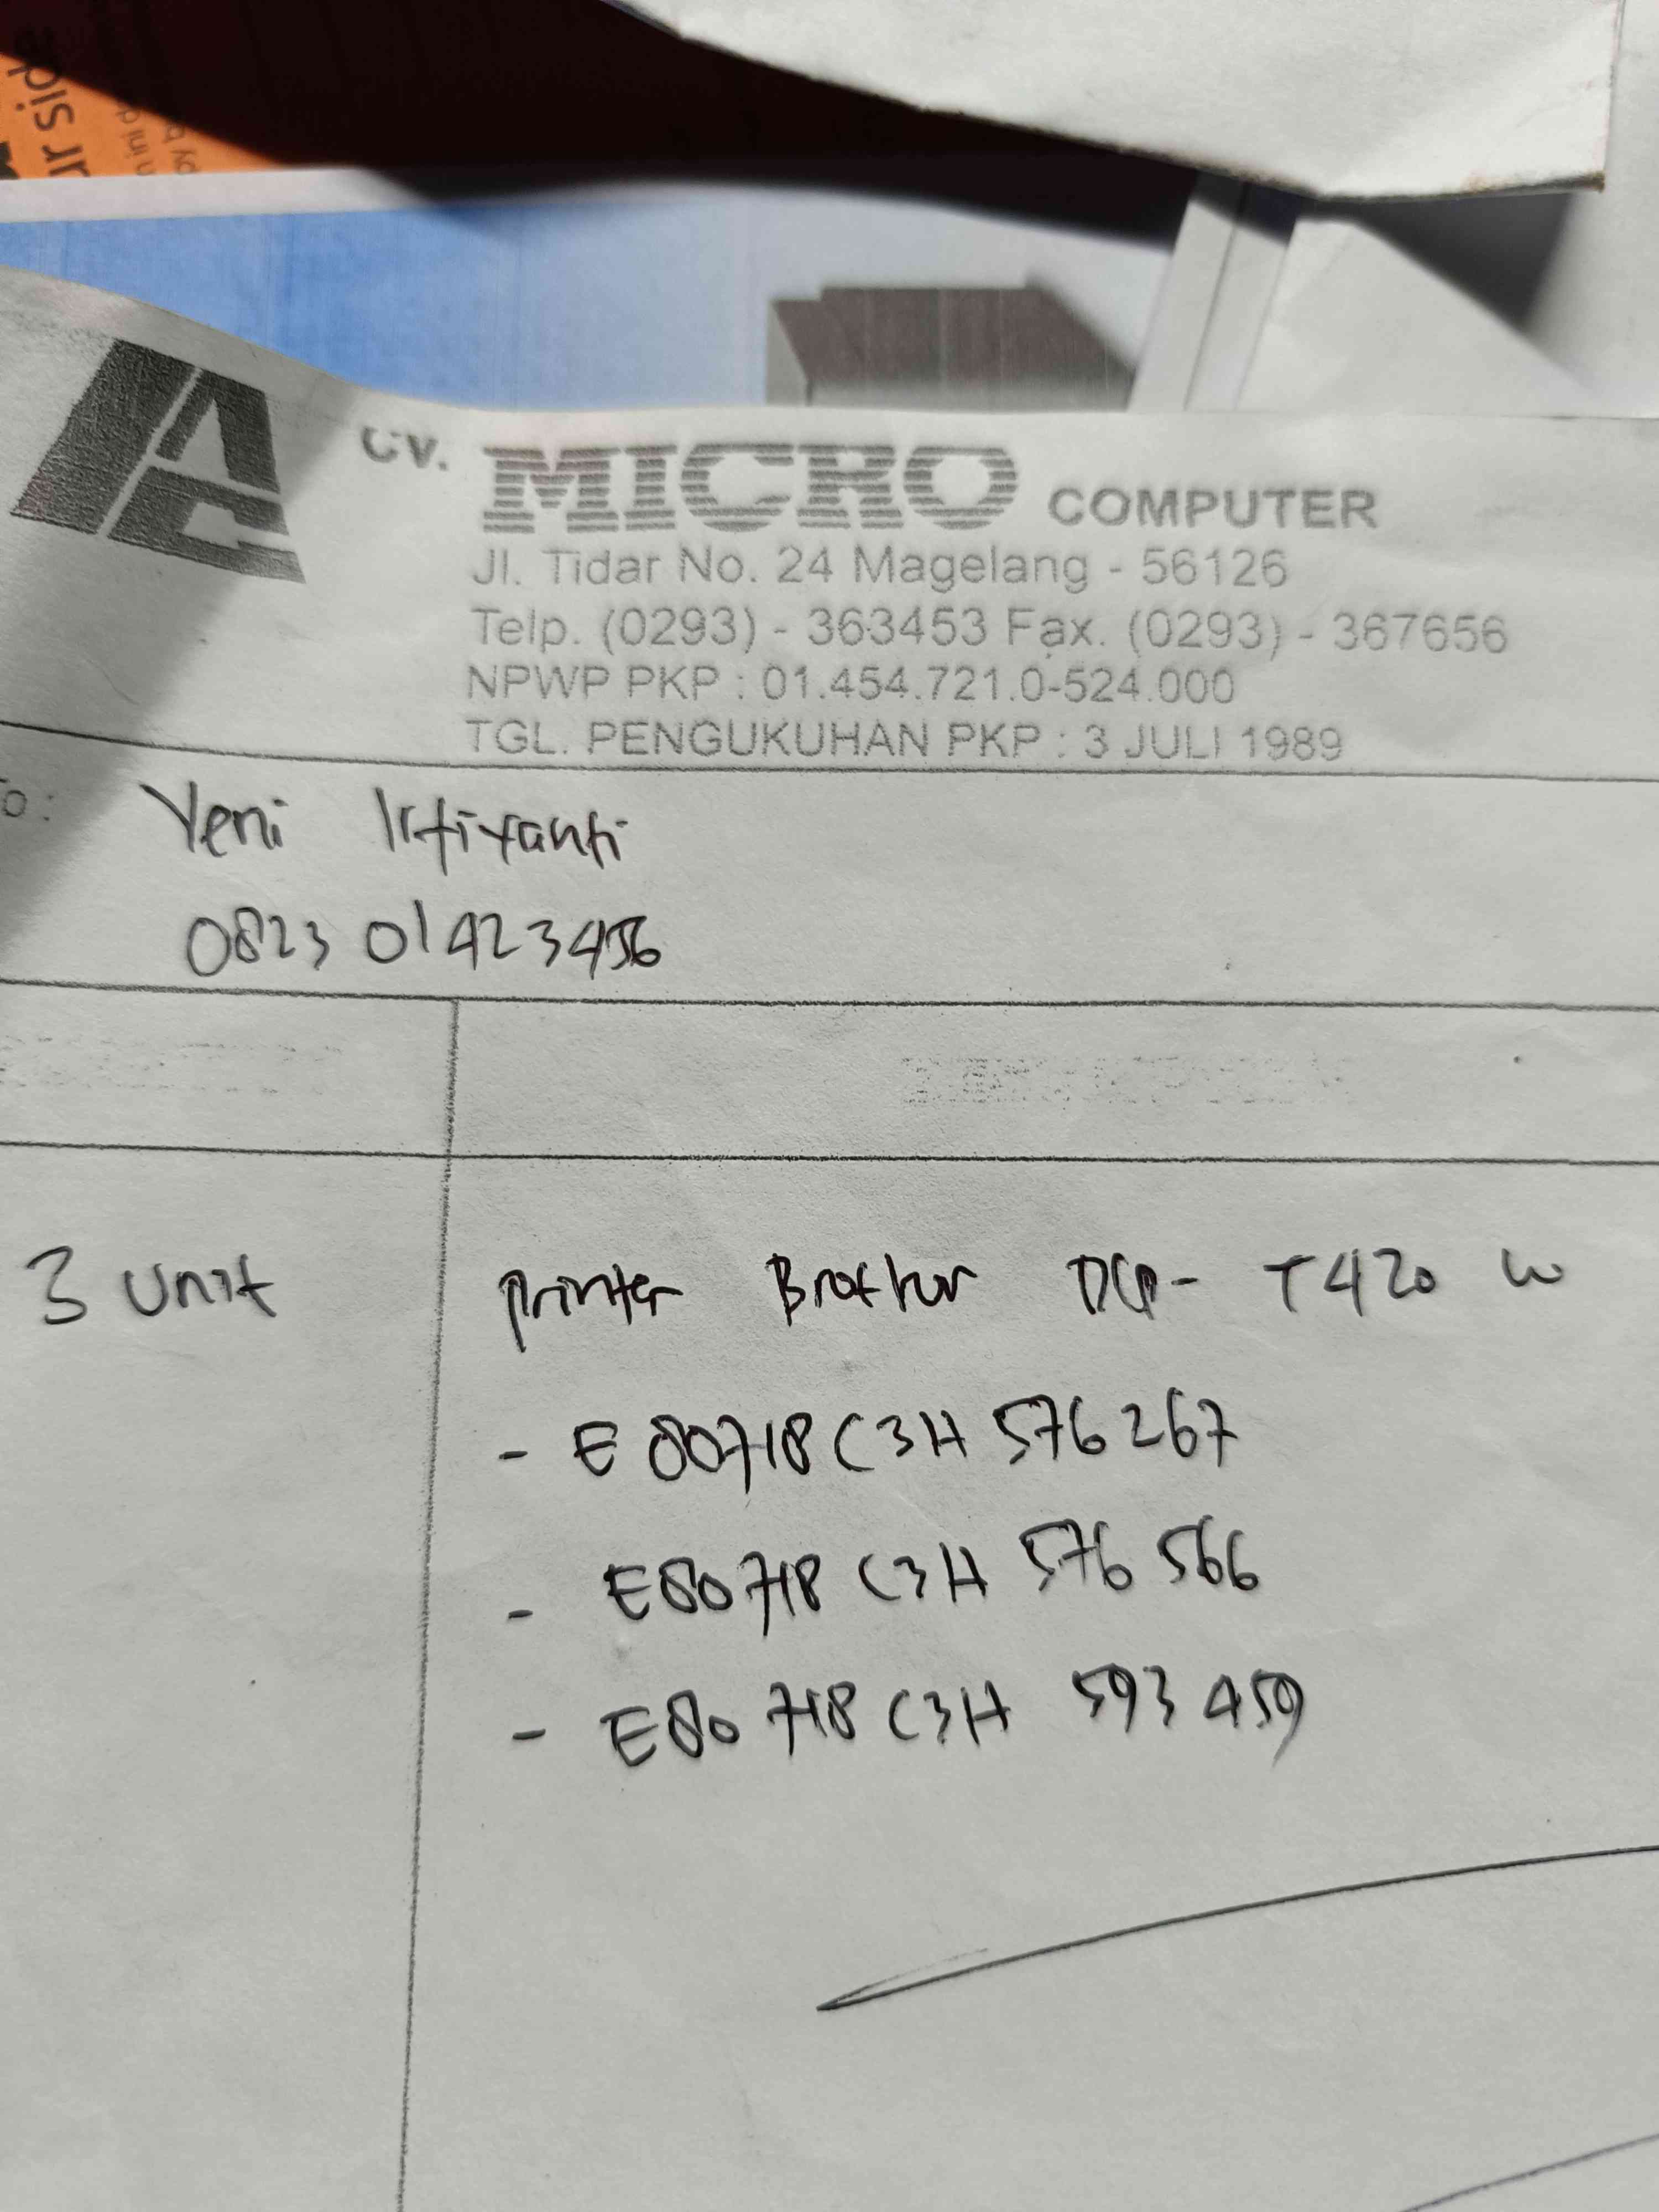 CV. MICRO COMPUTER
Jl. Tidar No. 24 Magelang - 56126
Telp. (0293) - 363453 Fax. (0293) - 367656
NPWP PKP : 01.454.721.0-524.000
TGL. PENGUKUHAN PKP : 3 JULI 1989
To: Yeni
0823 01423456
3 Unit printer Brother DCP- T420 W
- E80718C3H576267
- E80718C3H576566
- E80718C3H593459